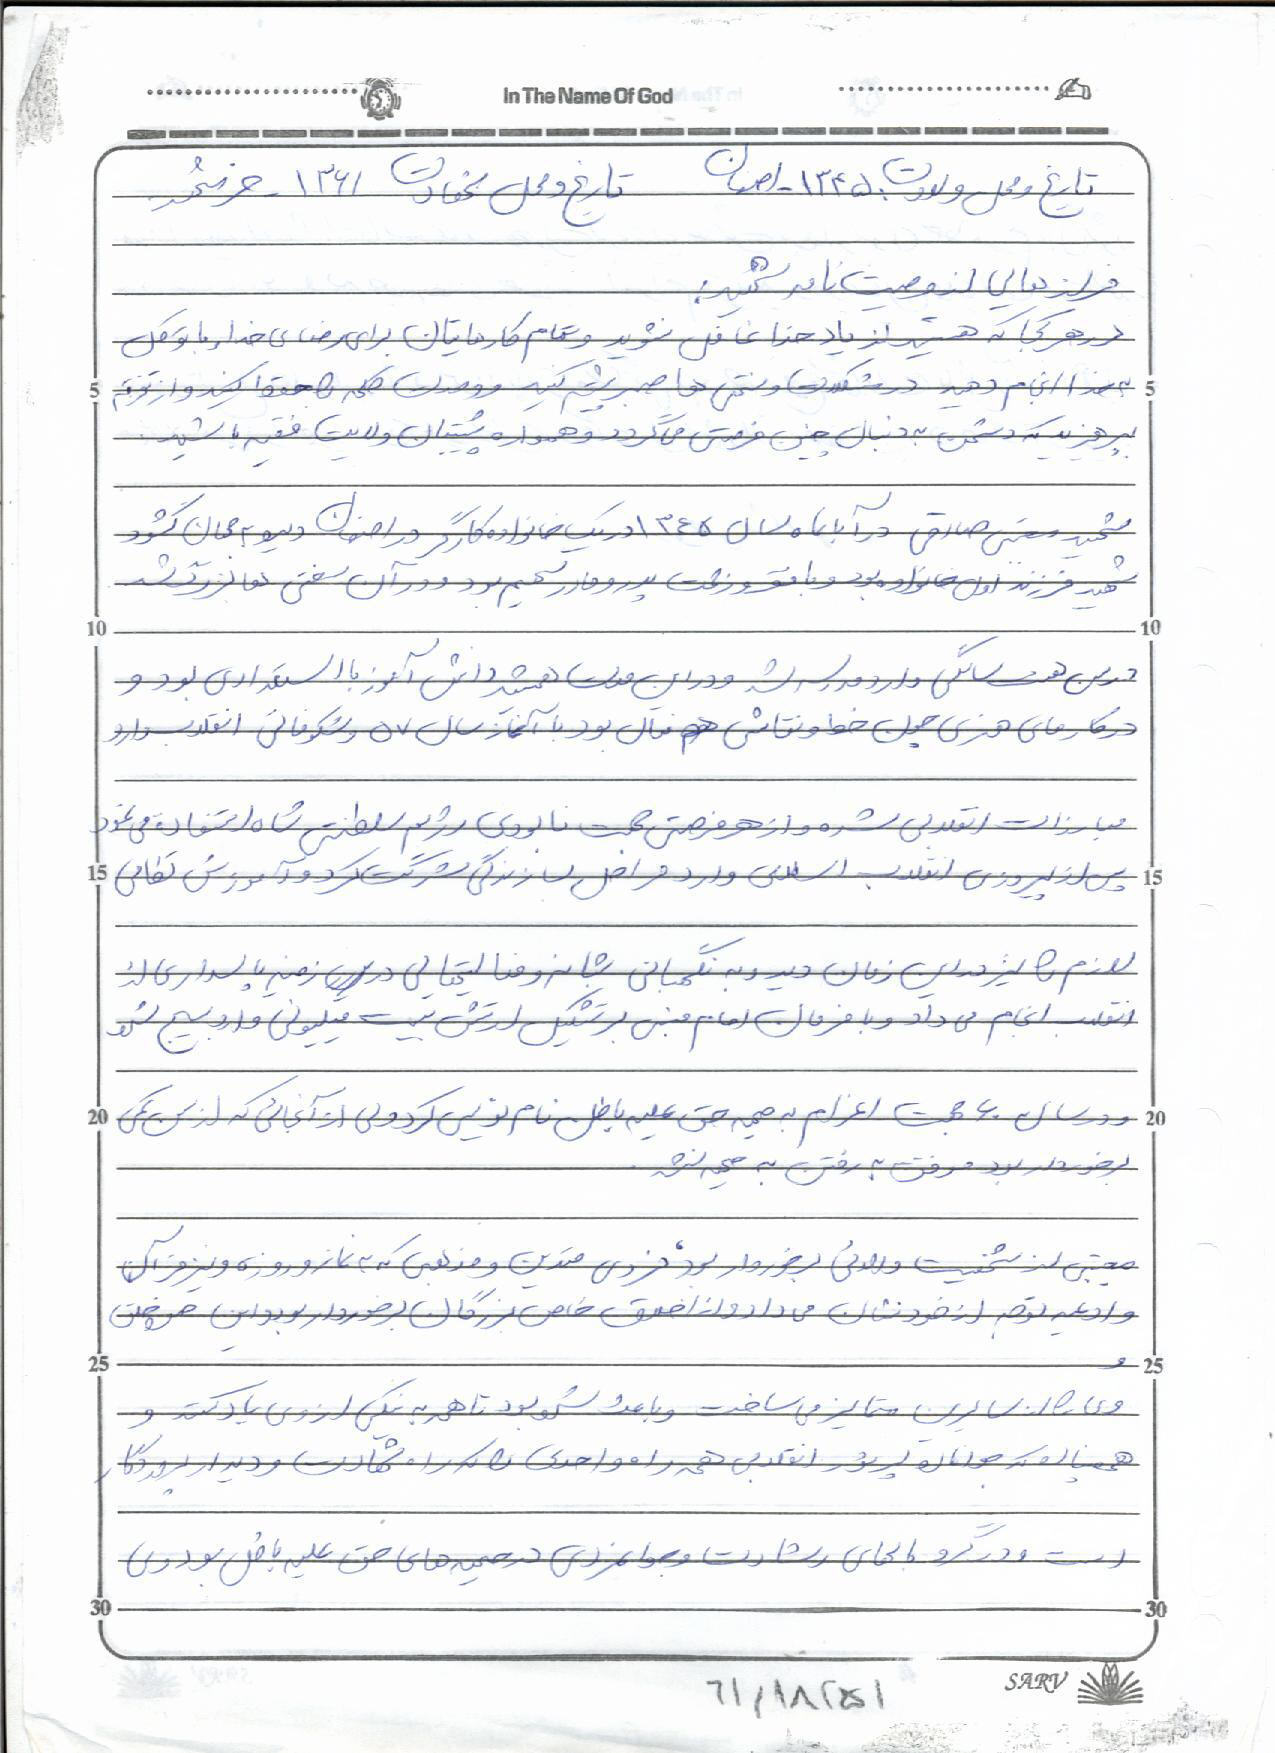 In The Name Of God
تاریخ و محل ولادت: ۱۳۴۵ - اصفهان تاریخ و محل شهادت ۱۳۶۱ - خرمشهر
فرازهایی از وصیت نامه شهید:
در هر کجا که هستید از یاد خدا غافل نشوید و تمام کارهایتان برای رضای خدا و با توکل
به خدا انجام دهید در مشکلات و سختی ها صبر پیشه کنید و وحدت کلمه را حفظ کنید و از تفرقه
بپرهیزید که دشمن به دنبال چنین فرصتی می گردد و همواره پشتیبان ولایت فقیه باشید.
شهید مجتبی صادقی در آبانماه سال ۱۳۴۵ در یک خانواده کارگر در اصفهان دیده به جهان گشود
شهید فرزند اول خانواده بود و با فقر و زحمت پدر و مادر سهیم بود و در آن سختی ها بزرگ شد
در سن هفت سالگی وارد مدرسه شد و در این مدت همیشه دانش آموز با استعدادی بود و
در کارهای هنری چون خط و نقاشی هم فعال بود با آغاز سال ۵۷ و شکوفائی انقلاب وارد
مبارزات انقلابی شده و از هر فرصتی جهت نابودی رژیم سلطنتی شاه استفاده می نمود
پس از پیروزی انقلاب اسلامی وارد مراحل سازندگی شرکت کرد و آموزش نظامی
لازم را نیز در این زمان دید و به نگهبانی شبانه و فعالیتهایی در این زمینه پاسداری از
انقلاب انجام می داد و با فرمان امام مبنی بر تشکیل ارتش بیست میلیونی وارد بسیج شد
و در سال ۶۰ جهت اعزام به جبهه حق علیه باطل نام نویسی کرد ولی از آنجائی که از سن کمی
برخوردار بود موفق به رفتن به جبهه نشد.
مجتبی از شخصیت والائی برخوردار بود، فردی متدین و مذهبی که به نماز و روزه و نیز قرآن
و ادعیه توجه از خود نشان می داد و از اخلاق خاص بزرگان برخوردار بود این خلق
و
وی را از سایرین متمایز می ساخت و باعث شده بود تا همه به نیکی از وی یاد کنند و
همچنان که جوانان پر شور انقلابی همه راه واحدی را که راه شهادت و دیدار پروردگار
است و در گرو رشادت و جوانمردی در جبهه های حق علیه باطل بود وی
5
5
10
10
15
15
20
20
25
25
30
30
SARV